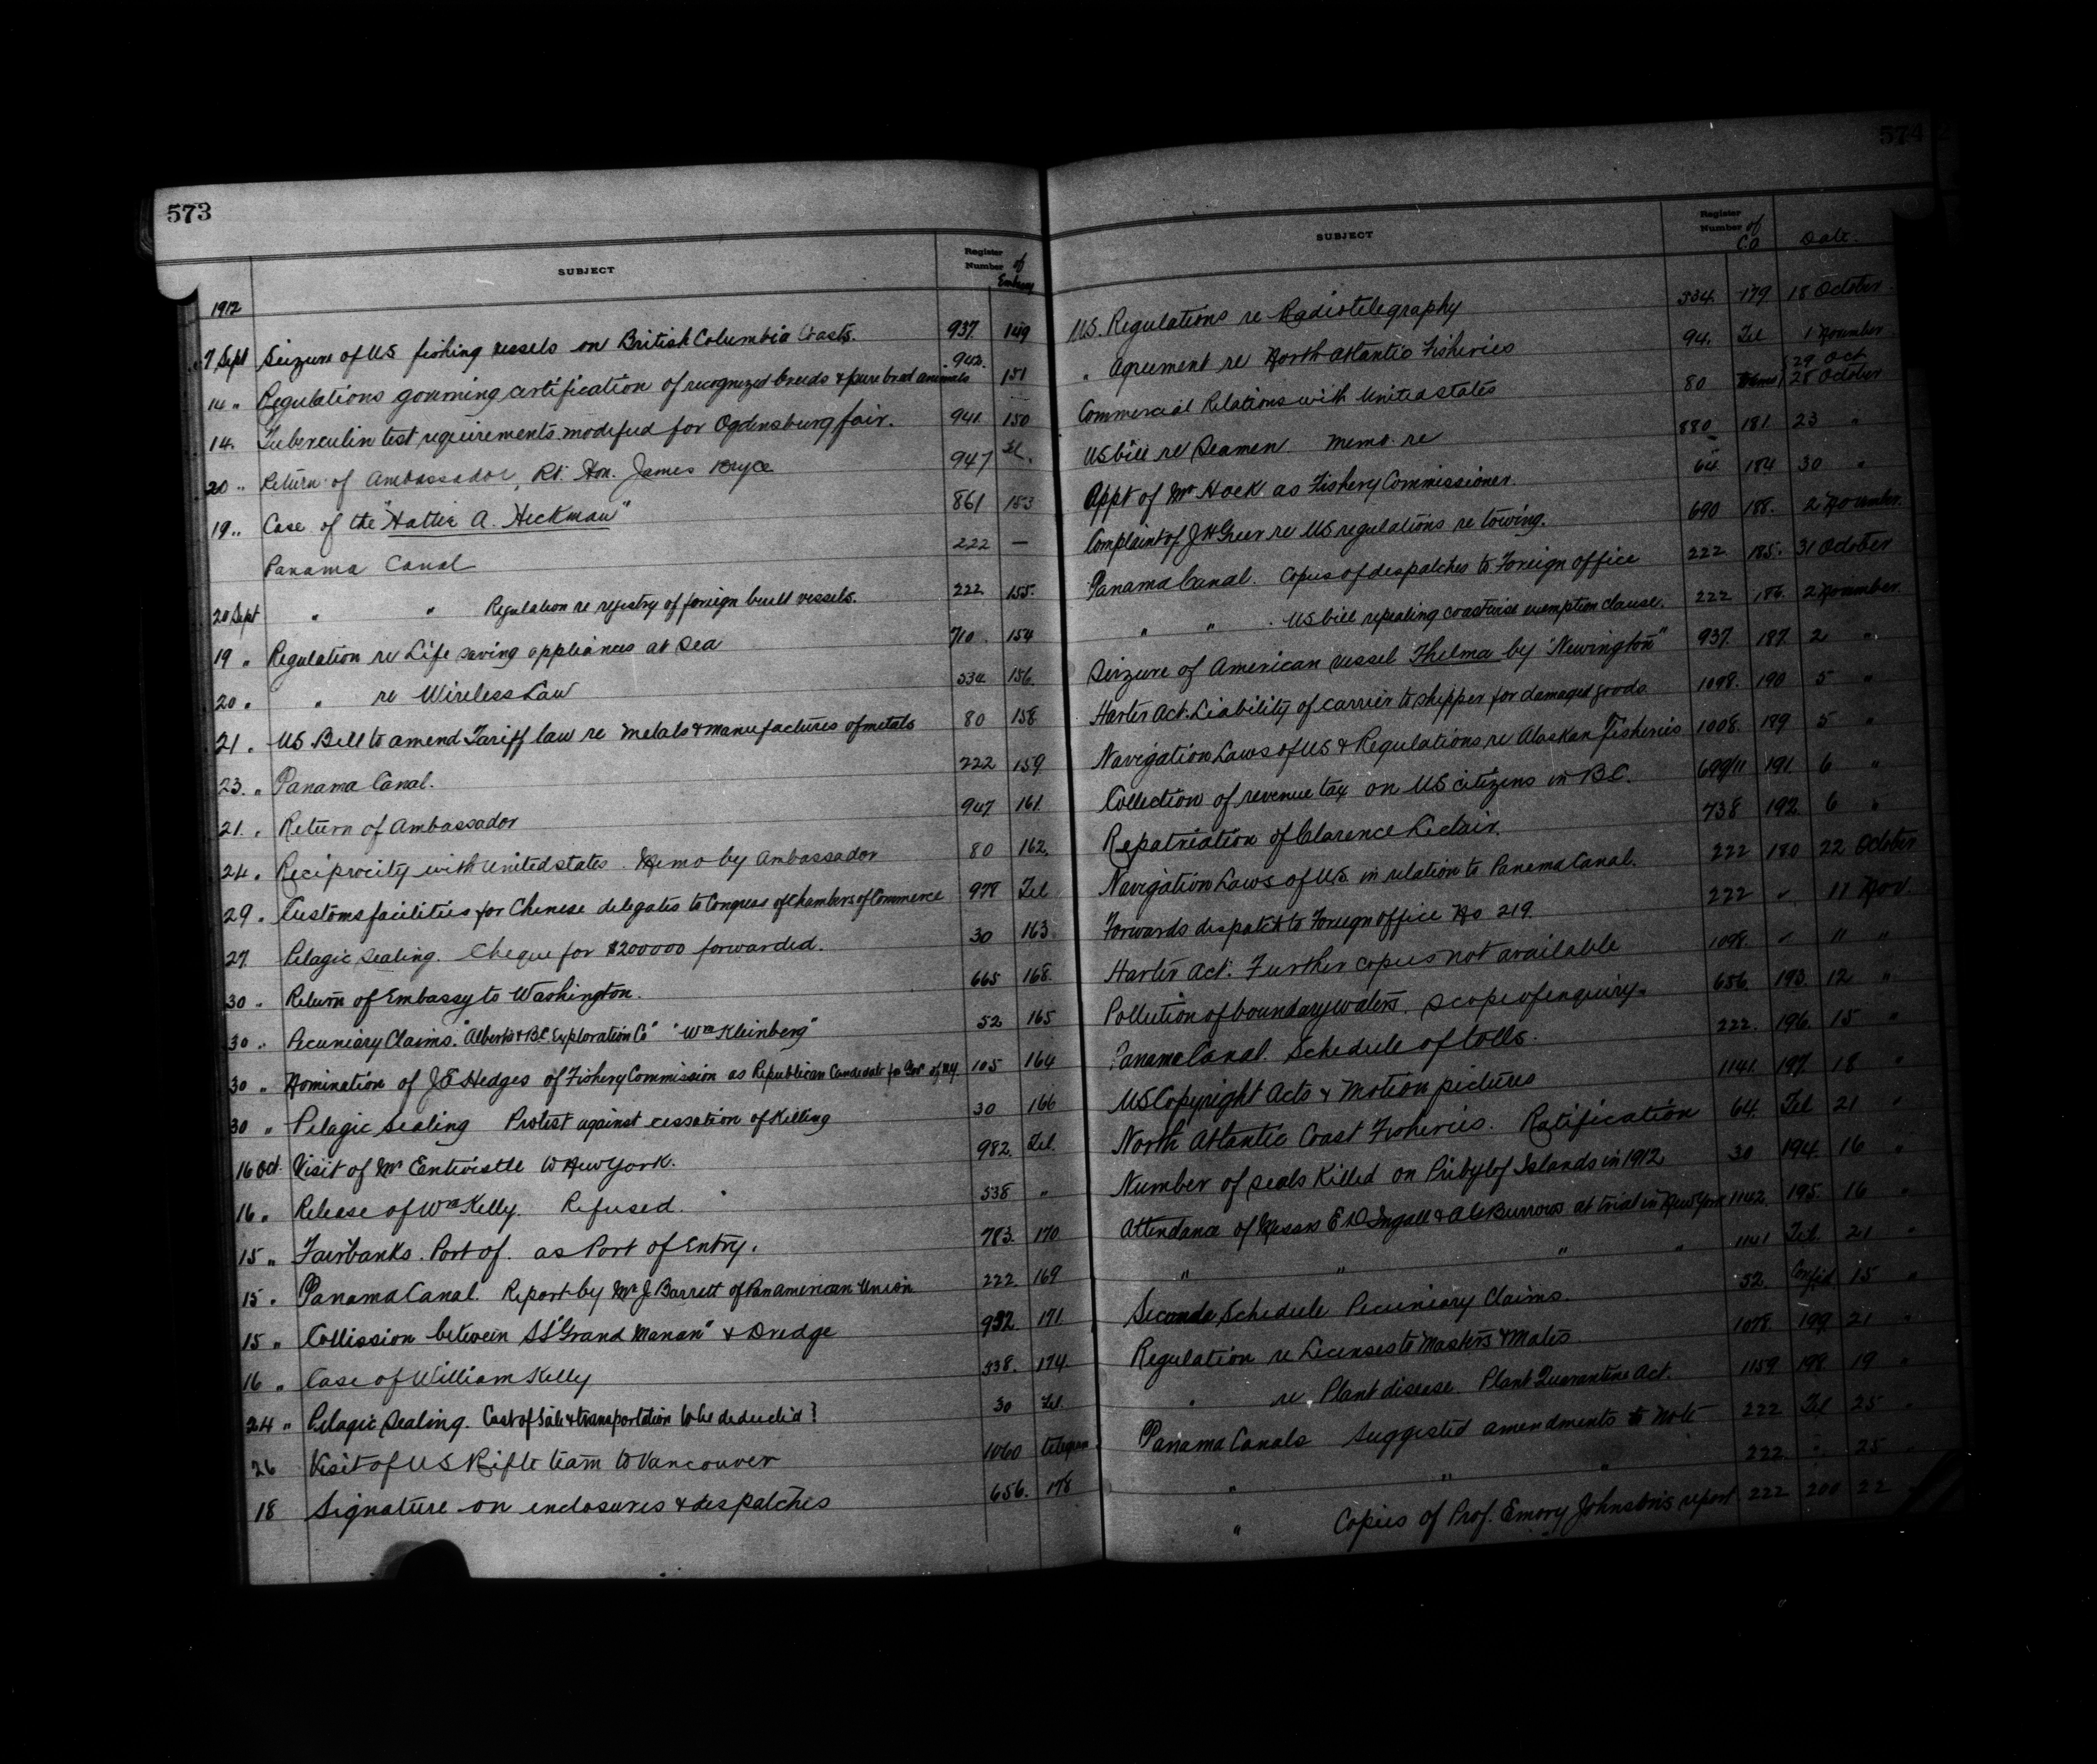 573
SUBJECT Register Number of Embassy
1912
7 Sept Seizure of US fishing vessels on British Columbia Coasts. 937 149
14 " Regulations governing certification of recognized breeds & pure bred animals 942. 151
14. Tuberculin test requirements modified for Ogdensburg fair. 941 150
20 " Return of Ambassador, Rt. Hon. James Bryce 947 Tel.
19 " Case of the "Hattie A. Heckman" 861 153
Panama Canal 222 —
20 Sept " " Regulation re registry of foreign built vessels. 222 155.
19 " Regulation re Life saving appliances at Sea 710. 154
20 " " re Wireless Law 334 156.
21 " US Bill to amend Tariff law re metals & manufactures of metals 80 158
23. " Panama Canal. 222 159
21. " Return of Ambassador 947 161.
24 " Reciprocity with United states. Memo by Ambassador 80 162.
29 " Customs facilities for Chinese delegates to Congress of Chambers of Commerce 978 Tel
27 Pelagic Sealing. Cheque for $200000 forwarded. 30 163
30 " Return of Embassy to Washington. 665 168.
30 " Pecuniary Claims. "Alberta & BC Exploration Co" "Wm Kleinberg" 52 165
30 " Nomination of J E Hedges of Fishery Commission as Republican Candidate for Gov of NY 105 164
30 " Pelagic Sealing Protest against cessation of Killing 30 166
16 Oct. Visit of Mr Entwistle to New York. 982. Tel.
16 " Release of Wm Kelly. Refused. 538 "
15 " Fairbanks. Port of. as Port of Entry. 783. 170
15 " Panama Canal. Report by Mr J. Barrett of Pan american Union 222. 169
15 " Collission between SS "Grand Manan" & Dredge 992. 171.
16 " Case of William Kelly 538. 174
24 " Pelagic Sealing. Cost of Sale & transportation to be deducted? 30 Tel.
26 Visit of US Rifle team to Vancouver 1060 telegram
18 Signature on enclosures & despatches 656. 178
574
SUBJECT Register Number of C.O Date.
US. Regulations re Radiotelegraphy 334. 179 18 October
" Agreement re North Atlantic Fisheries 94. Tel 1 November
29 Oct
Commercial Relations with United states 80 28 October
US bill re Seamen. Memo. re 880 181 23 "
Appt of Mr Hoek as Fishery Commissioner. 64 184 30 "
Complaint of J H Greer re US regulations re towing. 690 188. 2 November.
Panama Canal. Copies of despatches to Foreign office 222 185. 31 October
" " . US bill repealing coastwise exemption clause. 222 186. 2 November.
Seizure of American vessel Thelma by "Newington" 937. 187. 2 "
Harter Act. Liability of carrier to shipper for damaged goods 1098. 190 5 "
Navigation Laws of US & Regulations re Alaskan Fisheries 1008. 189 5 "
Collection of revenue tax on US citizens in B.C. 699/11 191. 6 "
Repatriation of Clarence Leclair. 738 192. 6 "
Navigation Laws of U.S. in relation to Panama Canal. 222 180 22 October
Forwards despatch to Foreign office No 219. 222 11 Nov.
Harter Act. Further copies not available 1098. 11 "
Pollution of boundary waters. Scope of enquiry. 656 193. 12 "
Panama Canal. Schedule of tolls. 222. 196. 15 "
US Copyright Acts & Motion pictures 1141. 197. 18 "
North Atlantic Coast Fisheries. Ratification 64. Tel 21 "
Number of seals Killed on Pribylof Islands in 1912. 30 194. 16 "
Attendance of Messrs E D Ingall & A G Burrows at trial in New York 1142. 195. 16 "
" " " " 1141 Tel. 21 "
Seconde Schedule Pecuniary Claims. 52. Confid. 15 "
Regulation re Licenses to Masters & Mates 1078. 199 21 "
" re Plant disease. Plant Quarantine Act. 1159 198 19 "
Panama Canals Suggested amendments to Note 222 Tel 25 "
" " " 222 " 25
" Copies of Prof. Emory Johnston's report. 222 200 22